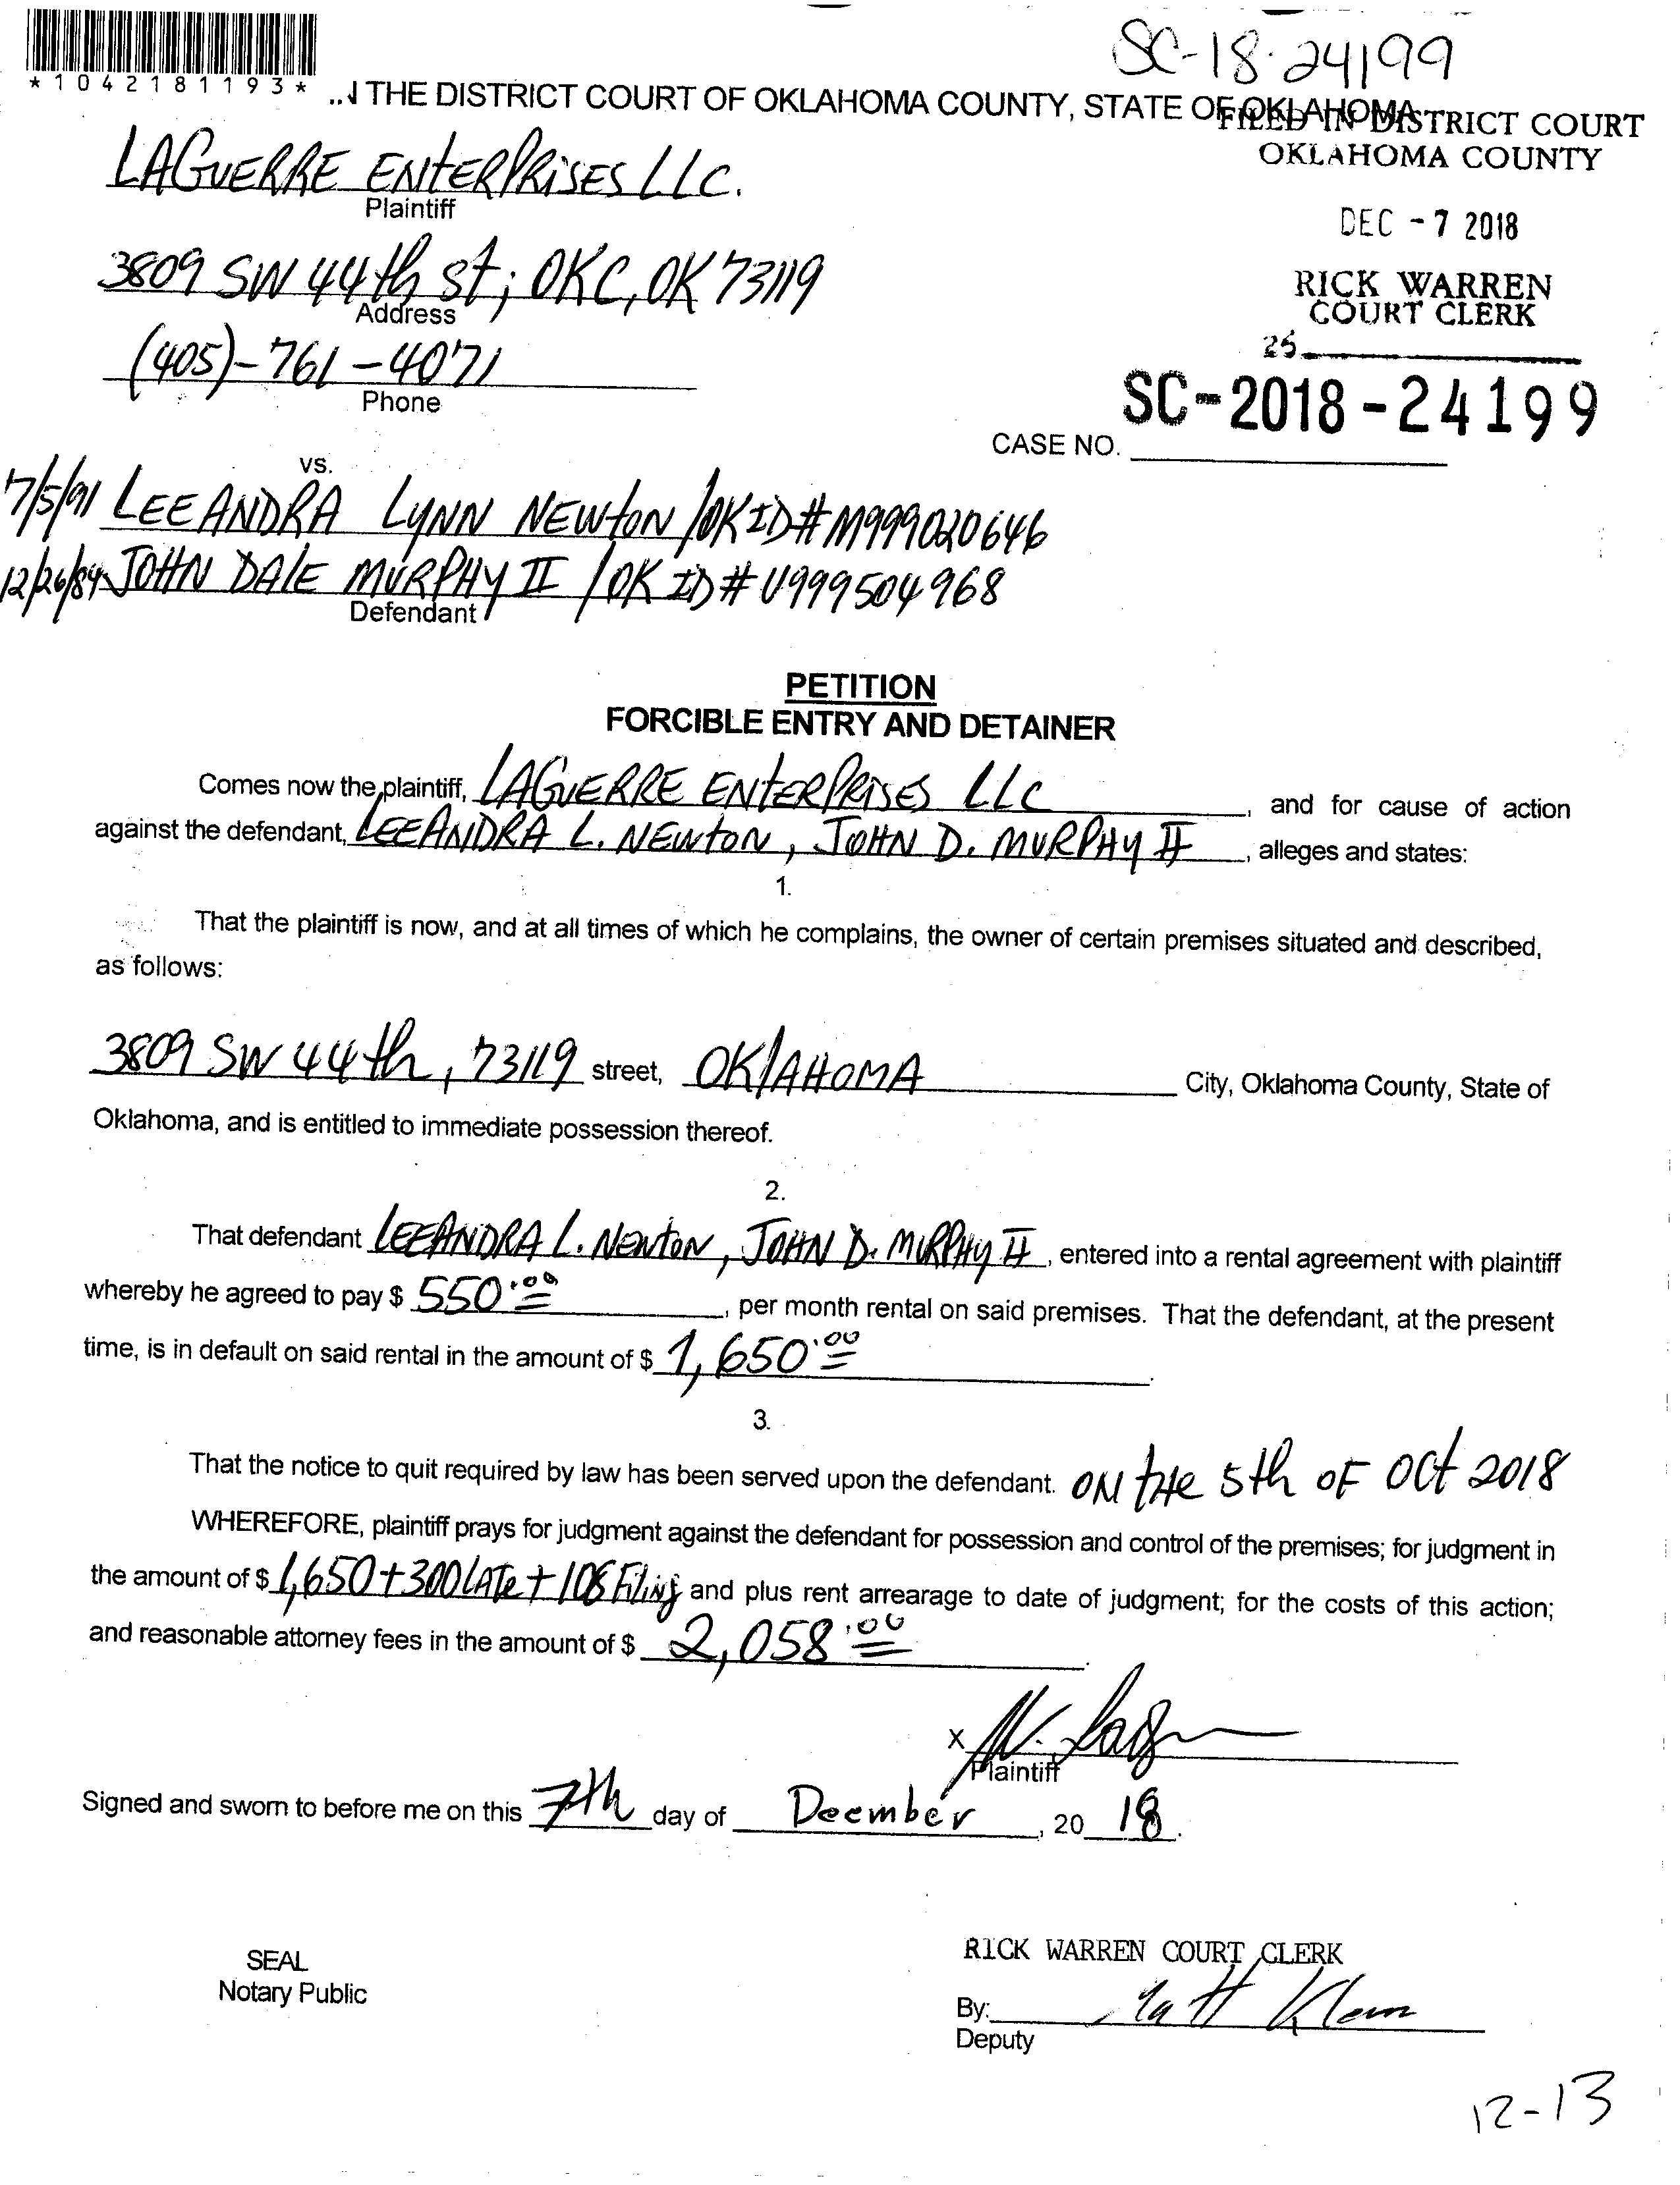 SC-18-24199
*1042181193*
THE DISTRICT COURT OF OKLAHOMA COUNTY, STATE OF OKLAHOMA
FILED IN DISTRICT COURT
OKLAHOMA COUNTY
LAGUERRE ENTERPRISES LLC.
Plaintiff
DEC -7 2018
3809 SW 44th st; OKC, OK 73119
Address
RICK WARREN
COURT CLERK
(405)-761-4071
Phone
25
SC-2018-24199
CASE NO.
vs.
7/5/91 LEEANDRA LYNN NEWTON /OK ID# M999020646
12/26/84 JOHN DALE MURPHY II /OK ID# U999504968
Defendant
PETITION
FORCIBLE ENTRY AND DETAINER
Comes now the plaintiff, LAGUERRE ENTERPRISES LLC, and for cause of action
against the defendant, LEEANDRA L. NEWTON, JOHN D. MURPHY II, alleges and states:
1.
That the plaintiff is now, and at all times of which he complains, the owner of certain premises situated and described,
as follows:
3809 SW 44th, 73119 street, OKlAHOMA City, Oklahoma County, State of
Oklahoma, and is entitled to immediate possession thereof.
2.
That defendant LEEANDRA L. NEWTON, JOHN D. MURPHY II, entered into a rental agreement with plaintiff
whereby he agreed to pay $ 550.00, per month rental on said premises. That the defendant, at the present
time, is in default on said rental in the amount of $ 1,650.00.
3.
That the notice to quit required by law has been served upon the defendant. ON tHe 5th OF OCt 2018
WHEREFORE, plaintiff prays for judgment against the defendant for possession and control of the premises; for judgment in
the amount of $ 1,650+300 LATe + 108 Filing and plus rent arrearage to date of judgment; for the costs of this action;
and reasonable attorney fees in the amount of $ 2,058.00.
X
Plaintiff
Signed and sworn to before me on this 7th day of Deember, 20 18.
SEAL
Notary Public
RICK WARREN COURT CLERK
By:
Deputy
12-13